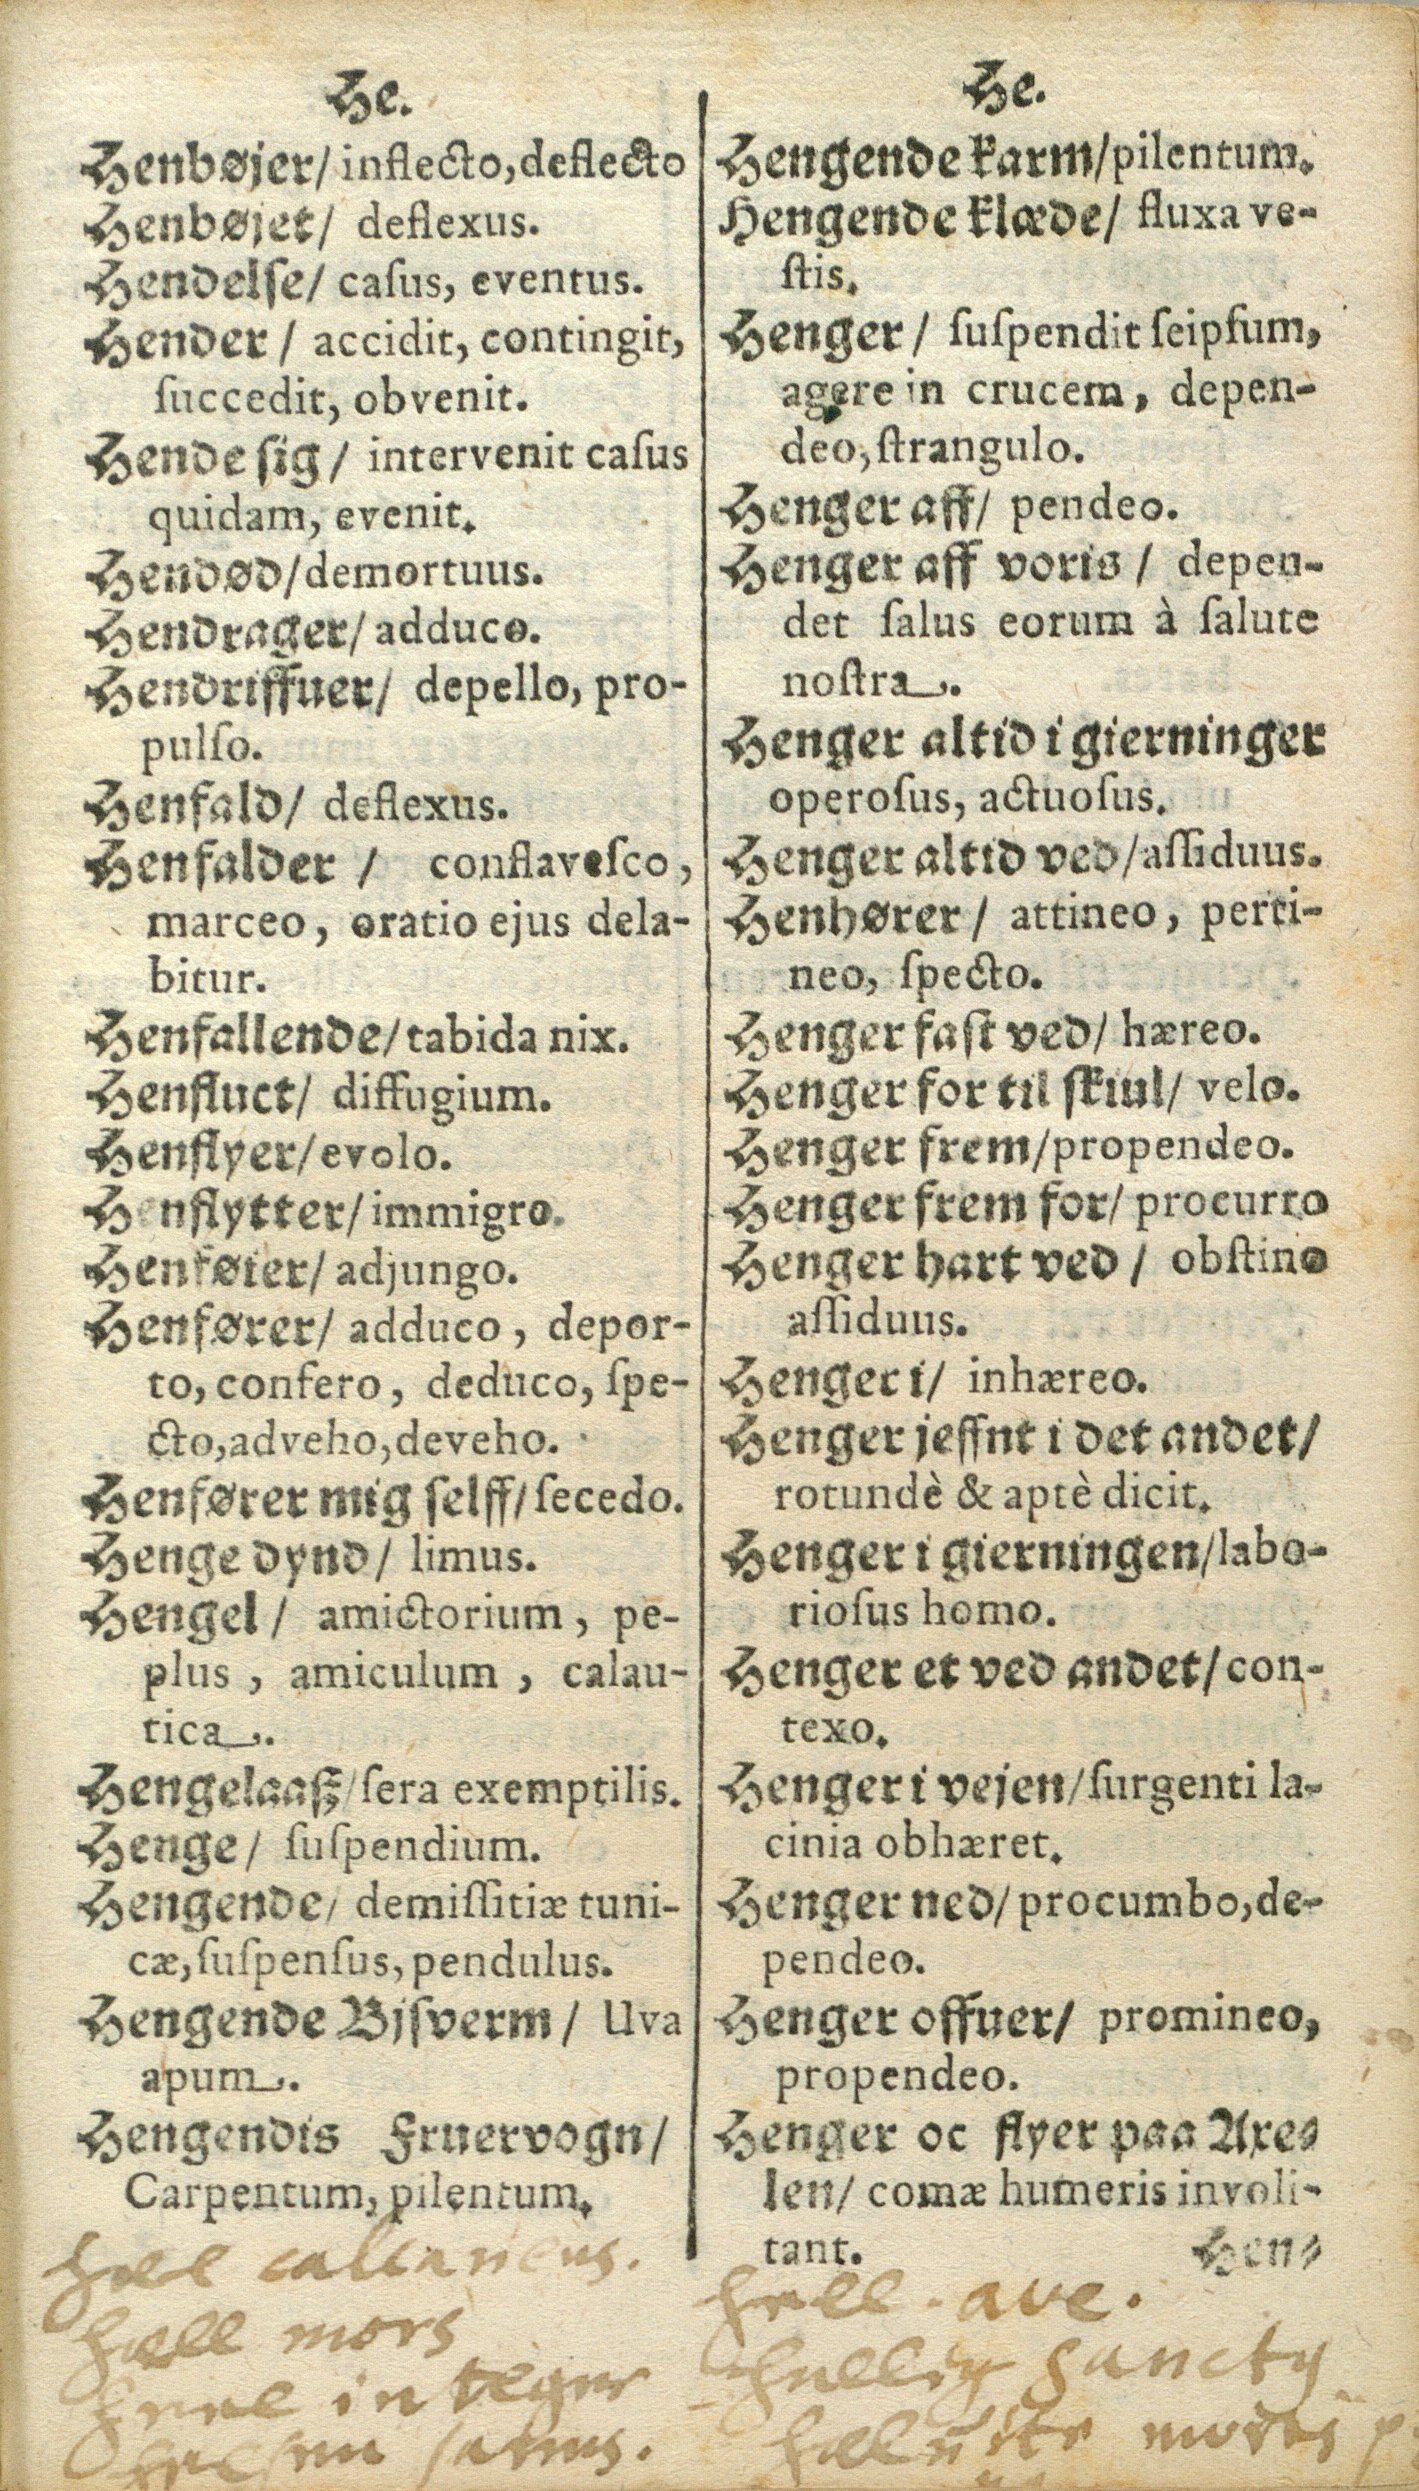 He.
Henbøjer/ inflecto, deflecto
Henbøjet/ deflexus.
Hendelſe/ caſus, eventus.
Hender / accidit, contingit,
ſuccedit, obvenit.
Hende ſig / intervenit caſus
quidam, evenit.
Hendød/demortuus.
Hendrager/ adduco.
Hendriffuer/ depello, pro-
pulſo.
Henfald/ deflexus.
Henfalder / conflaveſco,
marceo, oratio ejus dela-
bitur.
Henfallende/tabida nix.
Henfluct/ diffugium.
Henflyer/evolo.
Henflytter/immigro.
Henføier/ adjungo.
Henfører/ adduco, depor-
to, confero, deduco, ſpe-
cto, adveho, deveho.
Henfører mig ſelff/ſecedo.
Henge dynd/ limus.
Hengel/ amictorium, pe-
plus, amiculum, calau-
tica.
Hengelaaſz/ſera exemptilis.
Henge/ ſuſpendium.
Hengende/ demiſſitiæ tuni-
cæ, ſuſpenſus, pendulus.
Hengende Bjſverm/ Uva
apum.
Hengendis Fruervogn/
Carpentum, pilentum.
Hæl calcaneus.
hæll mors
heel integer
ſanus.
He.
Hengende karm/pilentum.
Hengende klæde/ fluxa ve-
ſtis.
Henger/ ſuſpendit ſeipſum,
agere in crucem, depen-
deo, ſtrangulo.
Henger aff/ pendeo.
Henger aff voris / depen-
det ſalus eorum à ſalute
noſtra.
Henger altid i gierninger
operoſus, actuoſus.
Henger altid ved/aſſiduus.
Henhører/ attineo, perti-
neo, ſpecto.
Henger faſt ved/ hæreo.
Henger for til ſkiul/ velo.
Henger frem/propendeo.
Henger frem for/ procurro
Henger hart ved/ obſtino
aſſiduus.
Henger i/ inhæreo.
Henger jeffnt i det andet/
rotundè & aptè dicit.
Henger i gierningen/labo-
rioſus homo.
Henger et ved andet/con-
texo.
Henger i vejen/ſurgenti la-
cinia obhæret.
Henger ned/procumbo, de-
pendeo.
Henger offuer/ promineo,
propendeo.
Henger oc flyer paa Axe-
len/ comæ humeris involi-
tant.
Hen-
hell. ave.
hellig sancty